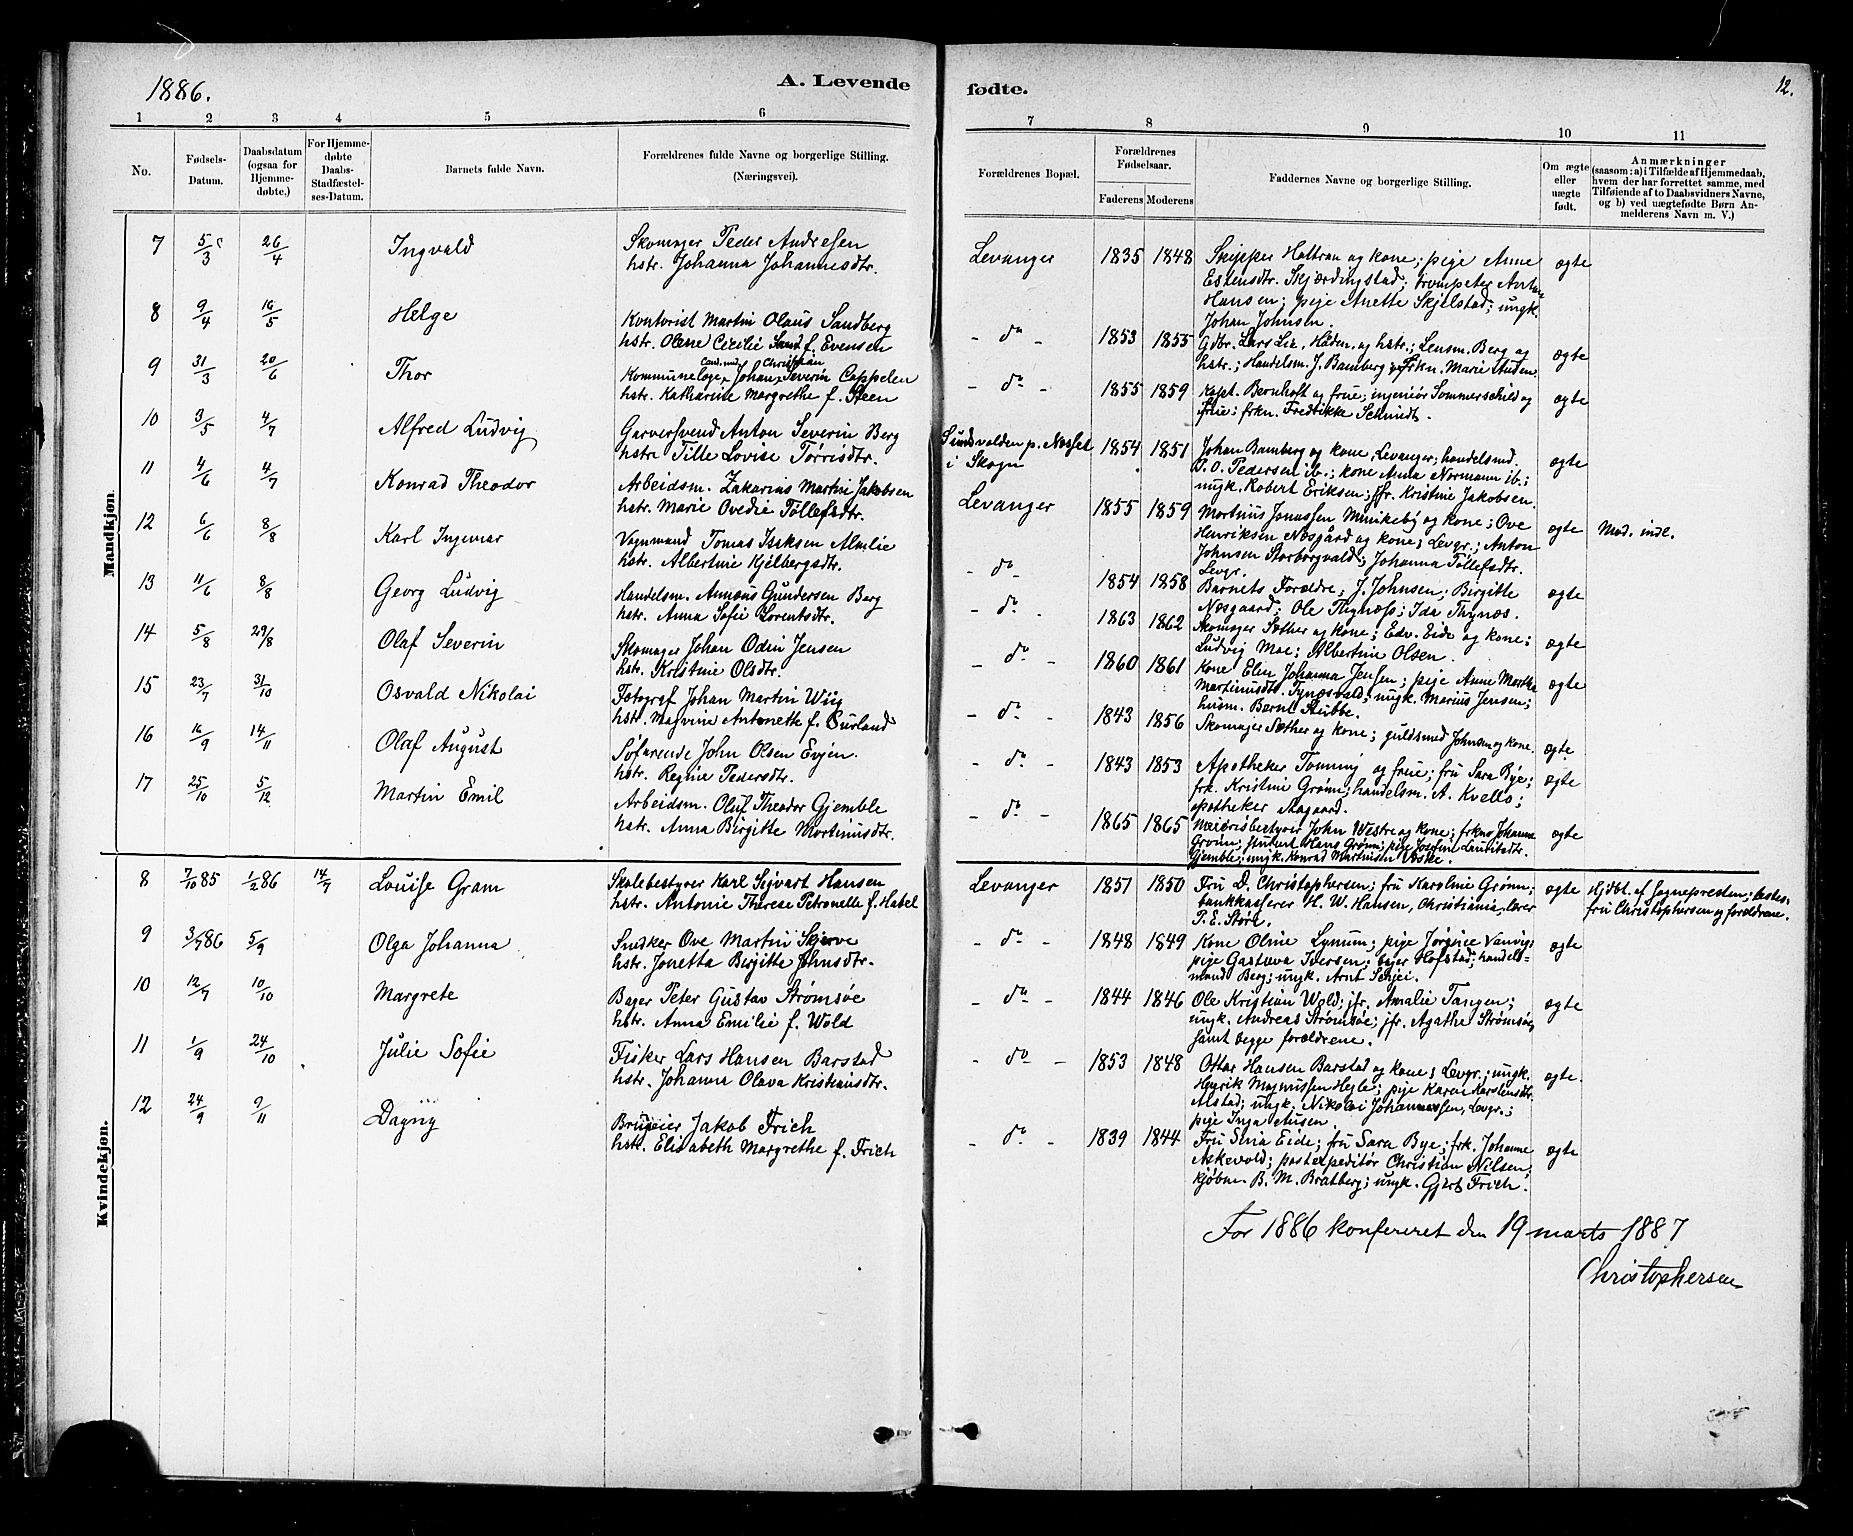 1886.
A. Levende
1 2 3 4 5 6
No.
Fødsels-Datum.
Daabsdatum (ogsaa for Hjemmedøbte.)
For Hjemmedøbte Daabs-Stadfæstelses-Datum.
Barnets fulde Navn.
Forældrenes fulde Navne og borgerlige Stilling.
(Næringsvei).
Mandkjøn.
7 5/3 26/4 Ingvald Skomager Peder Andresen
hstr. Johanna Johannesdtr.
8 9/4 16/5 Helge Kontorist Martin Olaus Sandberg
hstr. Oline Cecilie f. Evensen
9 31/3 20/6 Thor Kommunelæge, Cand. med. Johan Christian Severin Cappelen
hstr. Katharine Margrethe f. Steen
10 3/5 4/7 Alfred Ludvig Garversvend Anton Severin Berg
hstr. Tille Lovise Tørrisdtr.
11 4/6 4/7 Konrad Theodor Arbeidsm. Zakarias Martin Jakobsen
hstr. Marie Ovedie Tollefsdtr.
12 6/6 8/8 Karl Ingemar Vognmand Tomas Isaksen Almlie
hstr. Albertine Kjelbergsdtr.
13 11/6 8/8 Georg Ludvig Handelsm. Annæus Gundersen Berg
hstr. Anna Sofie Lorentsdtr.
14 5/8 29/8 Olaf Severin Skomager Johan Odin Jensen
hstr. Kristine Olsdtr.
15 23/7 31/10 Osvald Nikolai Fotograf Johan Martin Wiig
hstr. Magvine Antonette f. Ourland
16 16/9 14/11 Olaf August Søfarende John Olsen Evjen.
hstr. Regine Pedersdtr.
17 25/10 5/12 Martin Emil Arbeidsm. Oluf Theodor Gjemble
hstr. Anna Birgitte Mortinusdtr.
Kvindekjøn.
8 7/10 85 1/2 86 14/7 Louise Gram Skolebestyrer Karl Sigvart Hansen
hstr. Antonie Therese Petronelle f. Habel
9 3/7 86 5/9 Olga Johanna Snedker Ove Martin Skjerve
hstr. Jonetta Birgitte Johnsdtr.
10 12/7 10/10 Margrete Bager Peter Gustav Strømsøe
hstr. Anna Emilie f. Wold
11 1/9 24/10 Julie Sofie Fisker Lars Hansen Barstad
hstr. Johanna Olava Kristiansdtr.
12 24/9 9/11 Dagny Brugeier Jakob Frich
hstr. Elisabeth Margrethe f. Frich
fødte.
12.
7 8 9 10 11
Forældrenes Bopæl.
Forældrenes Fødselsaar.
Faderens Moderens
Faddernes Navne og borgerlige Stilling.
Om ægte eller uægte født.
Anmærkninger
(saasom: a) i Tilfælde af Hjemmedaab,
hvem der har forrettet samme, med
Tilføiende af to Daabsvidners Navne,
og b) ved uægtefødte Børn Anmelderens Navn m. V.)
Levanger 1835 1848 Skipper Haltran og kone; pige Anne ægte
Estensdtr. Skjærdingstad; trompeter Anton
Hansen; pige Anette Skjelstad; ungk.
Johan Johnsen.
- do - 1853 1855 Gdbr. Lars Lie, Heden, og hstr.; Lensm. Berg og ægte
hstr.; Handelsm. J. Bamberg; frkn. Marie Auden.
- do - 1855 1859 Kapt. Bernhoft og frue; ingeniør Sommerschild og ægte
frue; frkn. Fredrikke Schmidt.
Sundsvolden p. Nesset i Skogn 1854 1851 Johan Bamberg og kone, Levanger; handelsmd. ægte
P. O. Pedersen ib.; kone Anna Normann ib.;
ungk. Robert Eriksen; jfr. Kristine Jakobsen.
Levanger 1855 1859 Mortinus Jonassen Munkeby og kone; Ove ægte Mod. indl.
Henriksen Nesgård og kone; Levgr.; Anton
Johnsen Storborgvald; Johanna Tollefsdtr.
Levgr.
- do - 1854 1858 Barnets Forældre; J. Johnsen; Birgitte ægte
Nesgaard; Ole Thynæs; Ida Thynæs.
- do - 1863 1862 Skomager Sæther og kone; Edv. Eide og kone; ægte
Ludvig Moe; Albertine Olsen.
- do - 1860 1861 Kone Elen Johanna Jensen; pige Anne Martha ægte
Martinusdtr. Tynæsvald; ungk. Marius Jensen;
husm. Bernt Stubbe.
- do - 1843 1856 Skomager Sæther og kone; guldsmed Johnsen og kone. ægte
- do - 1843 1853 Apotheker Tonning og frue; fru Sara Bye; ægte
frk. Kristine Grønn; handelsm. A. Kvello;
apotheker Aagaard.
- do - 1865 1865 Meieribestyrer John Westre og kone; frkn. Johanna ægte
Grønn; student Hans Grønn; pige Josefine Lauritsdtr.
Gjemble; ungk. Konrad Martinsen Veske.
Levanger 1851 1850 Fru D. Christophersen; fru Karoline Grønn; ægte Hjdbt. af Sognepresten; testes:
bankkasserer H. W. Hansen, Christiania; lærer fru Christophersen og forældrene.
P. E. Støre.
- do - 1848 1849 Kone Oline Lynum; pige Jørgine Vanvig; ægte
pige Gustava Iversen; bager Hofstad; handelsmand Berg; ungk. Arnt Schjei.
- do - 1844 1846 Ole Kristian Wold; jfr. Amalie Tangen; ægte
ungk. Andreas Strømsøe; jfr. Agathe Strømsøe,
samt begge forældrene.
- do - 1853 1848 Ottar Hansen Barstad og kone; Levgr.; ungk. ægte.
Henrik Magnussen Hegle; pige Karen Karstensdtr.
Alstad; ungk. Nikolai Johannessen, Levgr.;
pige Inga Ausen.
- do - 1839 1844 Fru Eide; fru Sara Bye; frk. Johanne ægte
Askevold; postexpeditør Christian Nilsen;
kjøbm. B. M. Bratberg; ungk. Gjert Frich.
For 1886 konfereret den 19 marts 1887
Christophersen